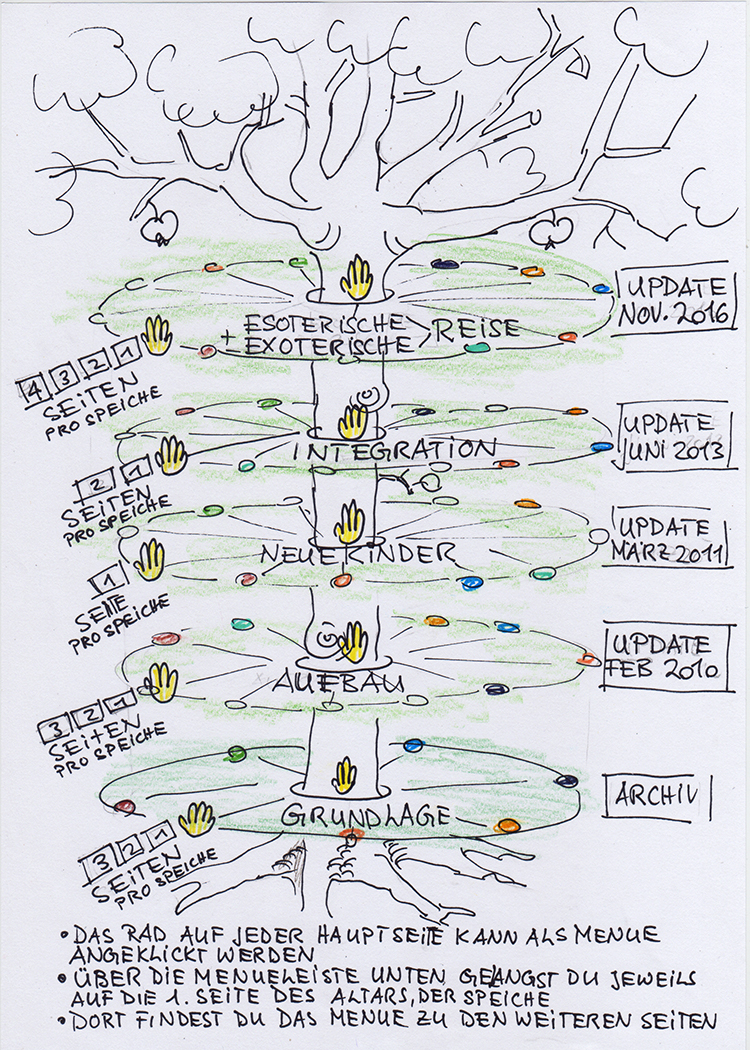 UPDATE
NOV. 2016
ESOTERISCHE
+ EXOTERISCHE
REISE
4 3 2 1
SEITEN
PRO SPEICHE
UPDATE
JUNI 2013
INTEGRATION
2 1
SEITEN
PRO SPEICHE
UPDATE
MÄRZ 2011
NEUE KINDER
1
SEITE
PRO SPEICHE
UPDATE
FEB 2010
AUFBAU
3 2 1
SEITEN
PRO SPEICHE
ARCHIV
GRUNDLAGE
3 2 1
SEITEN
PRO SPEICHE
• DAS RAD AUF JEDER HAUPTSEITE KANN ALS MENUE
ANGEKLICKT WERDEN
• ÜBER DIE MENUELEISTE UNTEN GELANGST DU JEWEILS
AUF DIE 1. SEITE DES ALTARS, DER SPEICHE
• DORT FINDEST DU DAS MENUE ZU DEN WEITEREN SEITEN